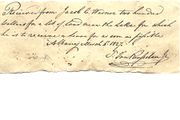 Received from Jacob C. Warner two hundred
dollars for a lot of land near the lake for which
he is to receive a lease for as soon as possible
Albany March 5. 1827.